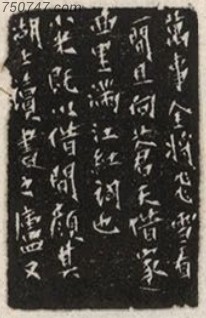 750747.com
萬事全將飛雪看
一閒且向貧天借家
西里滿江紅詞也
光既以借閒顏其
湖上讀書之廬又